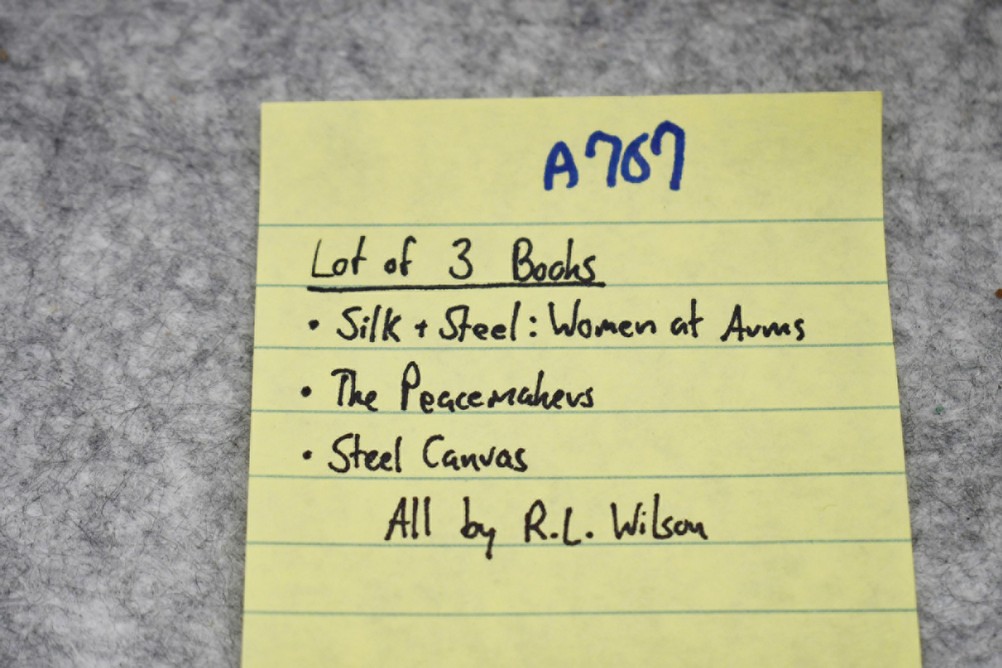 A767
Lot of 3 Books
• Silk + Steel: Women at Arms
• The Peacemakers
• Steel Canvas
All by R.L. Wilson